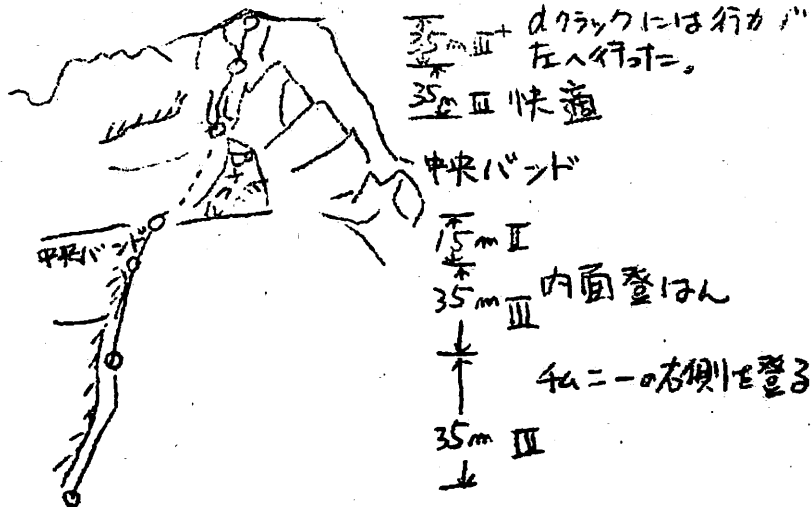 35m III⁺ dクラックには行かず
左へ行った。
35m II 快適
中央バンド
中央バンド
15m II
35m III 内面登はん
チムニーの右側を登る
35m III